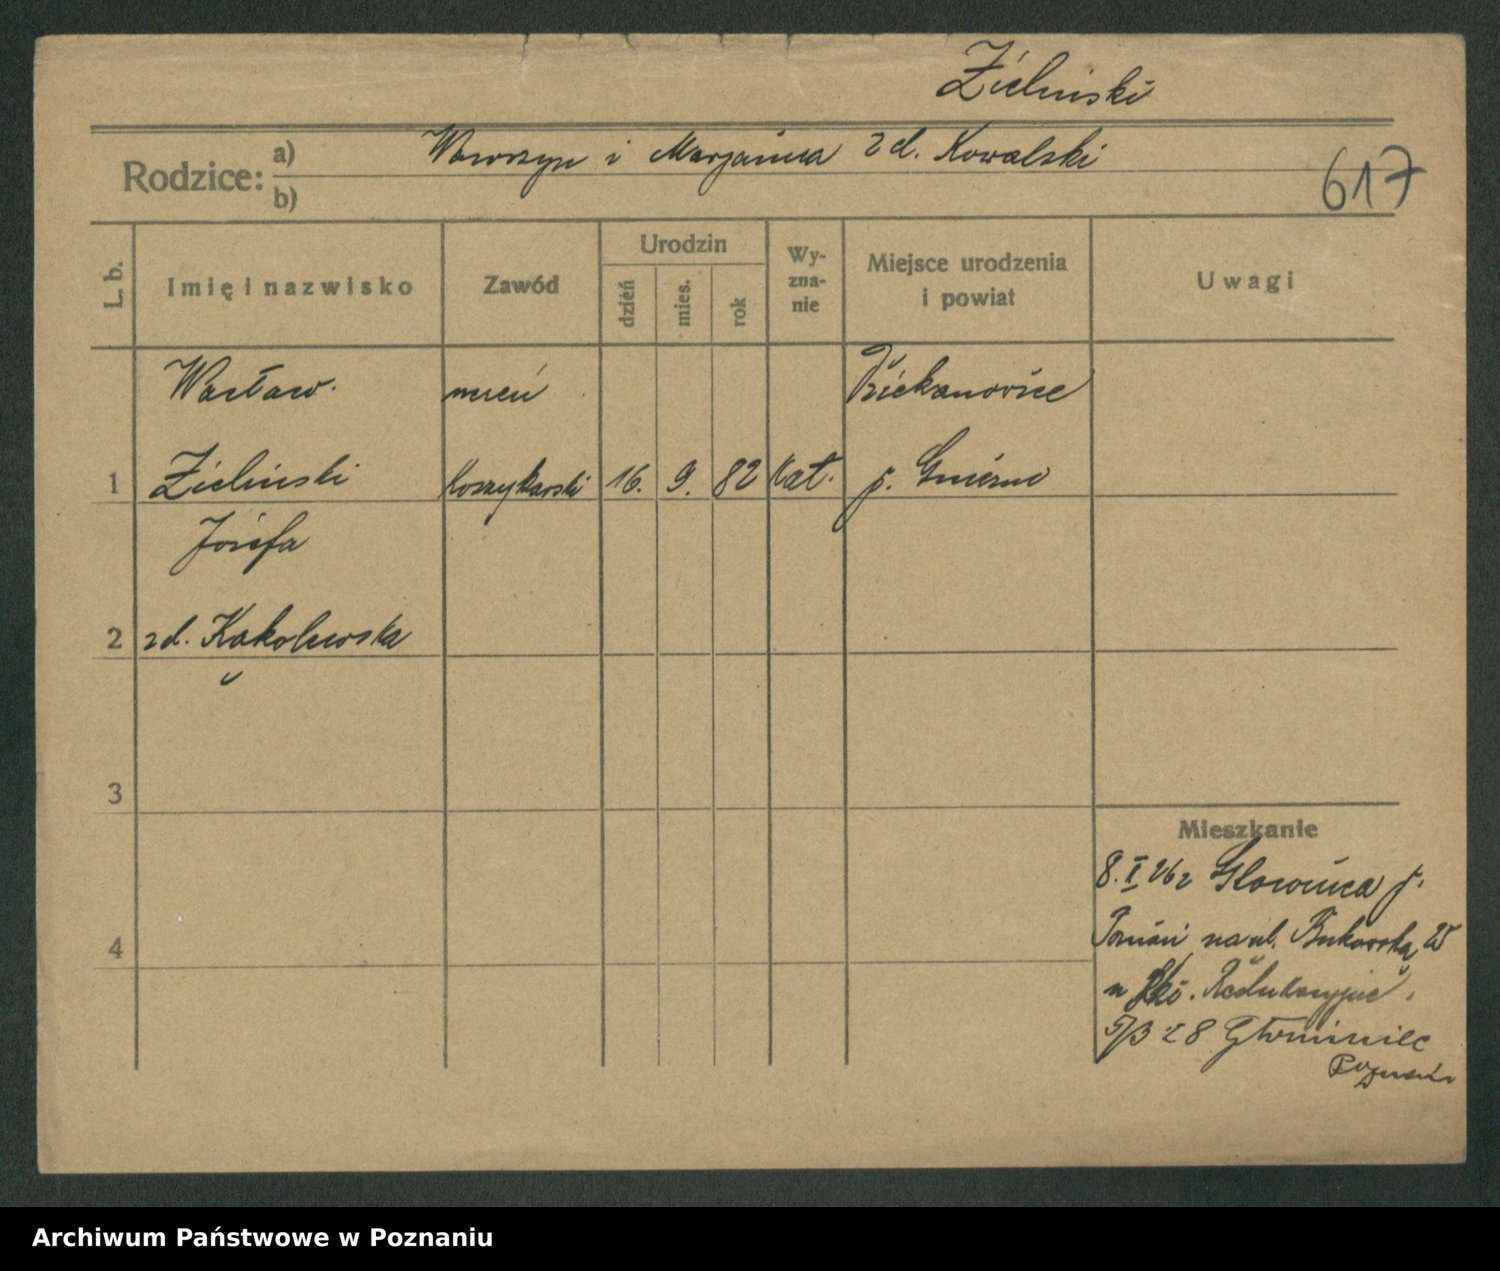 Zieliński
Rodzice: a) Wawrzyn i Marjanna zd. Kowalski
b)
617
L. b.
Imię i nazwisko
Zawód
Urodzin
dzień
mies.
rok
Wy-
zna-
nie
Miejsce urodzenia
i powiat
Uwagi
Wacław. uczeń Dziekanowice
1 Zieliński koszykarski 16. 9. 82 kat. p. Gniezno
Józefa
2 zd. Kąkolewska
3
4
Mieszkanie
8. I 26 z Glownica p.
Poznań na ul. Bukowską 25
u
5/3 28 Głominiec
Poznań
Archiwum Państwowe w Poznaniu